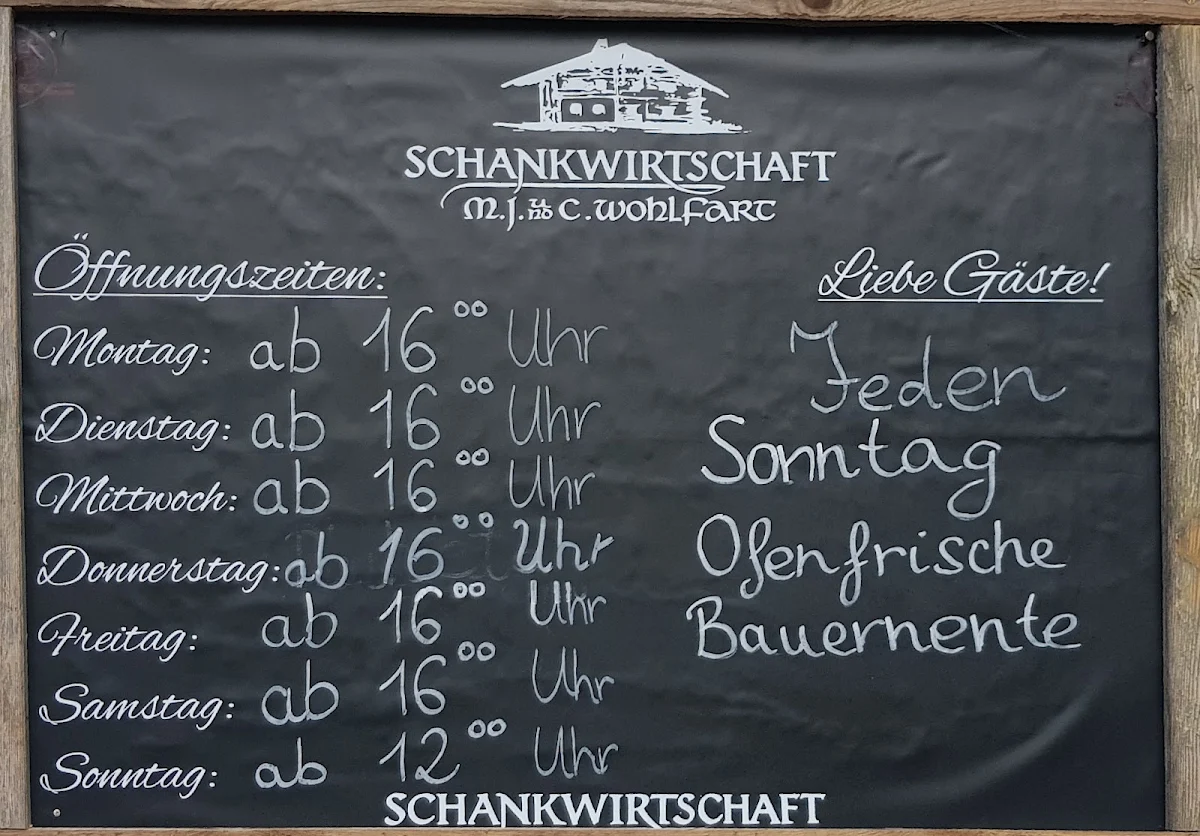 SCHANKWIRTSCHAFT
M.J. UND C. WOHLFART
Öffnungszeiten:
Montag: ab 16⁰⁰ Uhr
Dienstag: ab 16⁰⁰ Uhr
Mittwoch: ab 16⁰⁰ Uhr
Donnerstag: ab 16⁰⁰ Uhr
Freitag: ab 16⁰⁰ Uhr
Samstag: ab 16⁰⁰ Uhr
Sonntag: ab 12⁰⁰ Uhr
Liebe Gäste!
Jeden
Sonntag
Ofenfrische
Bauernente
SCHANKWIRTSCHAFT